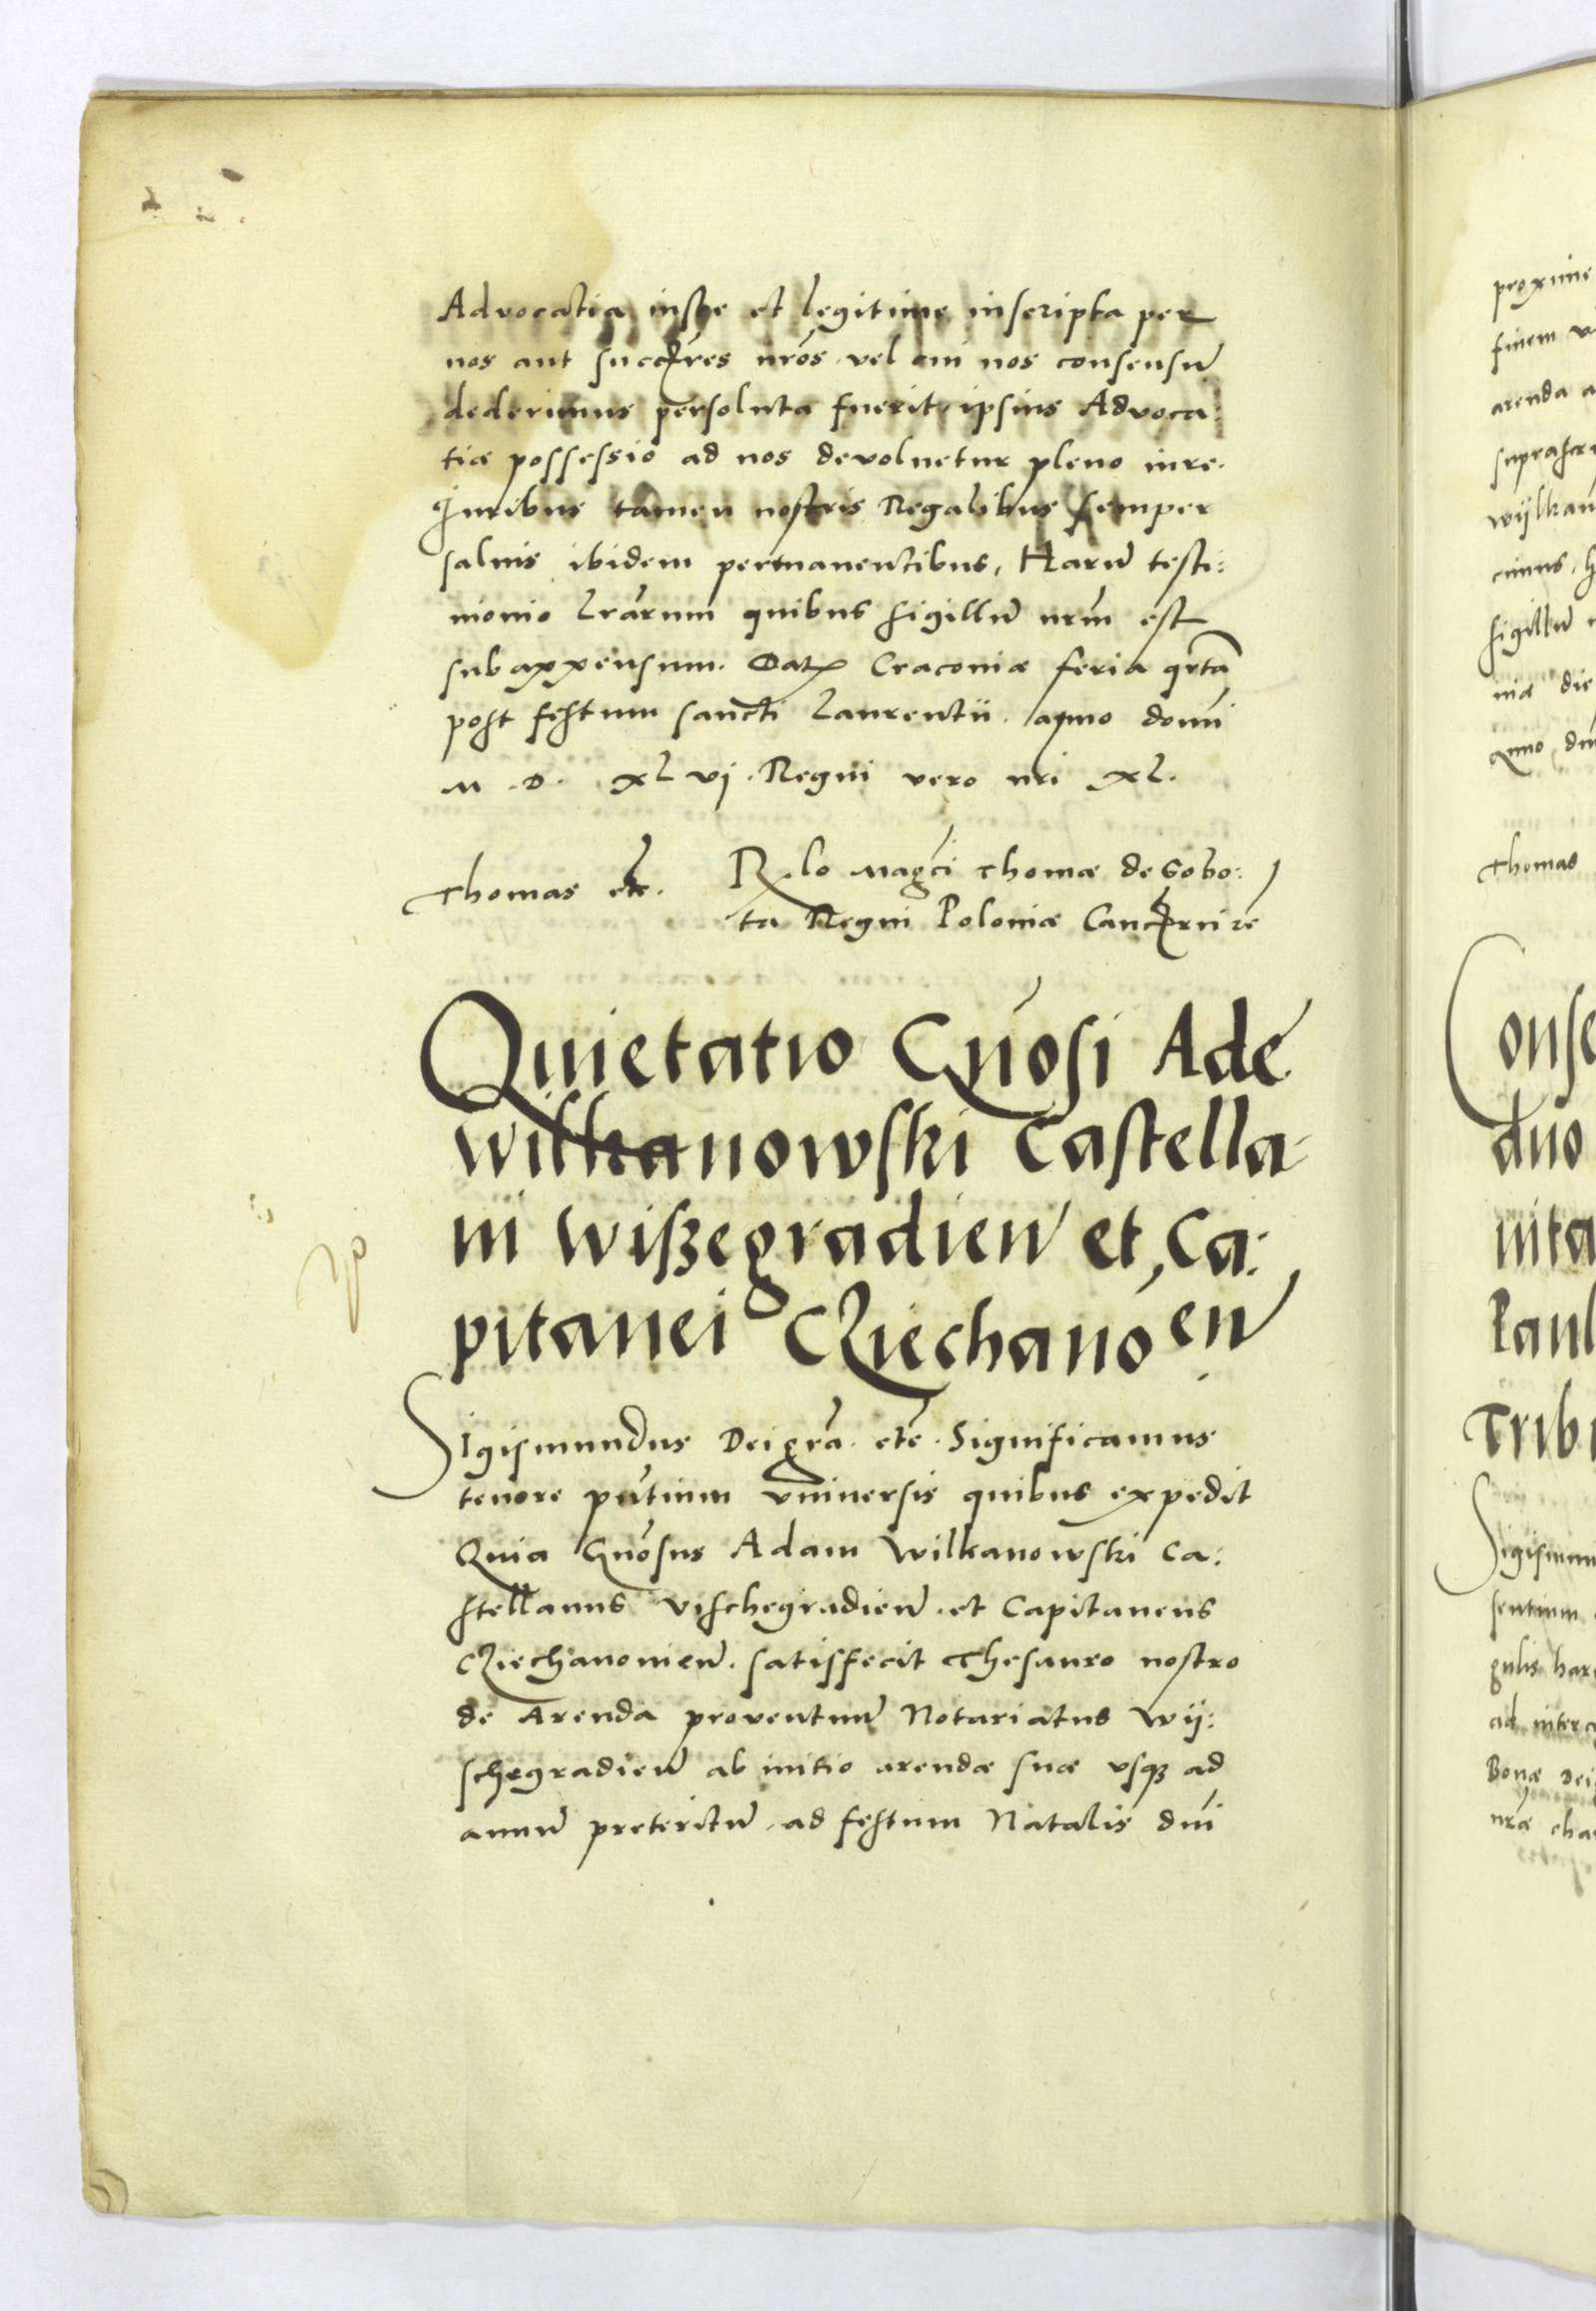 Advocatia iuste et legitime inscripta per
nos aut succ̃res nr̃os vel cui nos consensũ
dederimus persoluta fuerit, ipsius Advoca:
tiæ possessio ad nos devoluetur pleno iure.
Iuribus tamen nostris Regalibus semper
saluis ibidem permanentibus, Harũ testi:
monio Lr̃arum quibus sigillũ nr̃m est
subappensum. Dat Cracoviæ feria qr̃ta
post festum sancti Laurentii. anno domĩ
M. D. XL vj. Regni vero nr̃i XL.
Thomas etc̃. R̃lo Mag̃ci Thomæ de Sobo:
ta Regni Poloniæ Canc̃rii re
Quietatio Gñosi Adẽ
Wilkanowski Castella
ni Wißegradieñ et Ca:
pitanei Cziechanoeñ
Sigismundus Dei gr̃a. etc̃. Significamus
tenore pñtium vniuersis quibus expedit
Quia Gñosus Adam Wilkanowski Ca:
stellanus Vischegradieñ. et Capitaneus
Cziechanovieñ. satisfecit Thesauro nostro
de Arenda proventuũ Notariatus Wy:
schegradieñ ab initio arendæ suæ vsq3 ad
annũ preteritũ, ad festum Natalis dñi
proxime
finem
arenda a
Wÿlkan
cimus,
sigillũ
niæ die
Anno dñ
Thomas
Conse
duo
nita
Paul
Trib
Sigismun
sentium
gulis har
ad inter
Bonæ Dei
nr̃æ cha